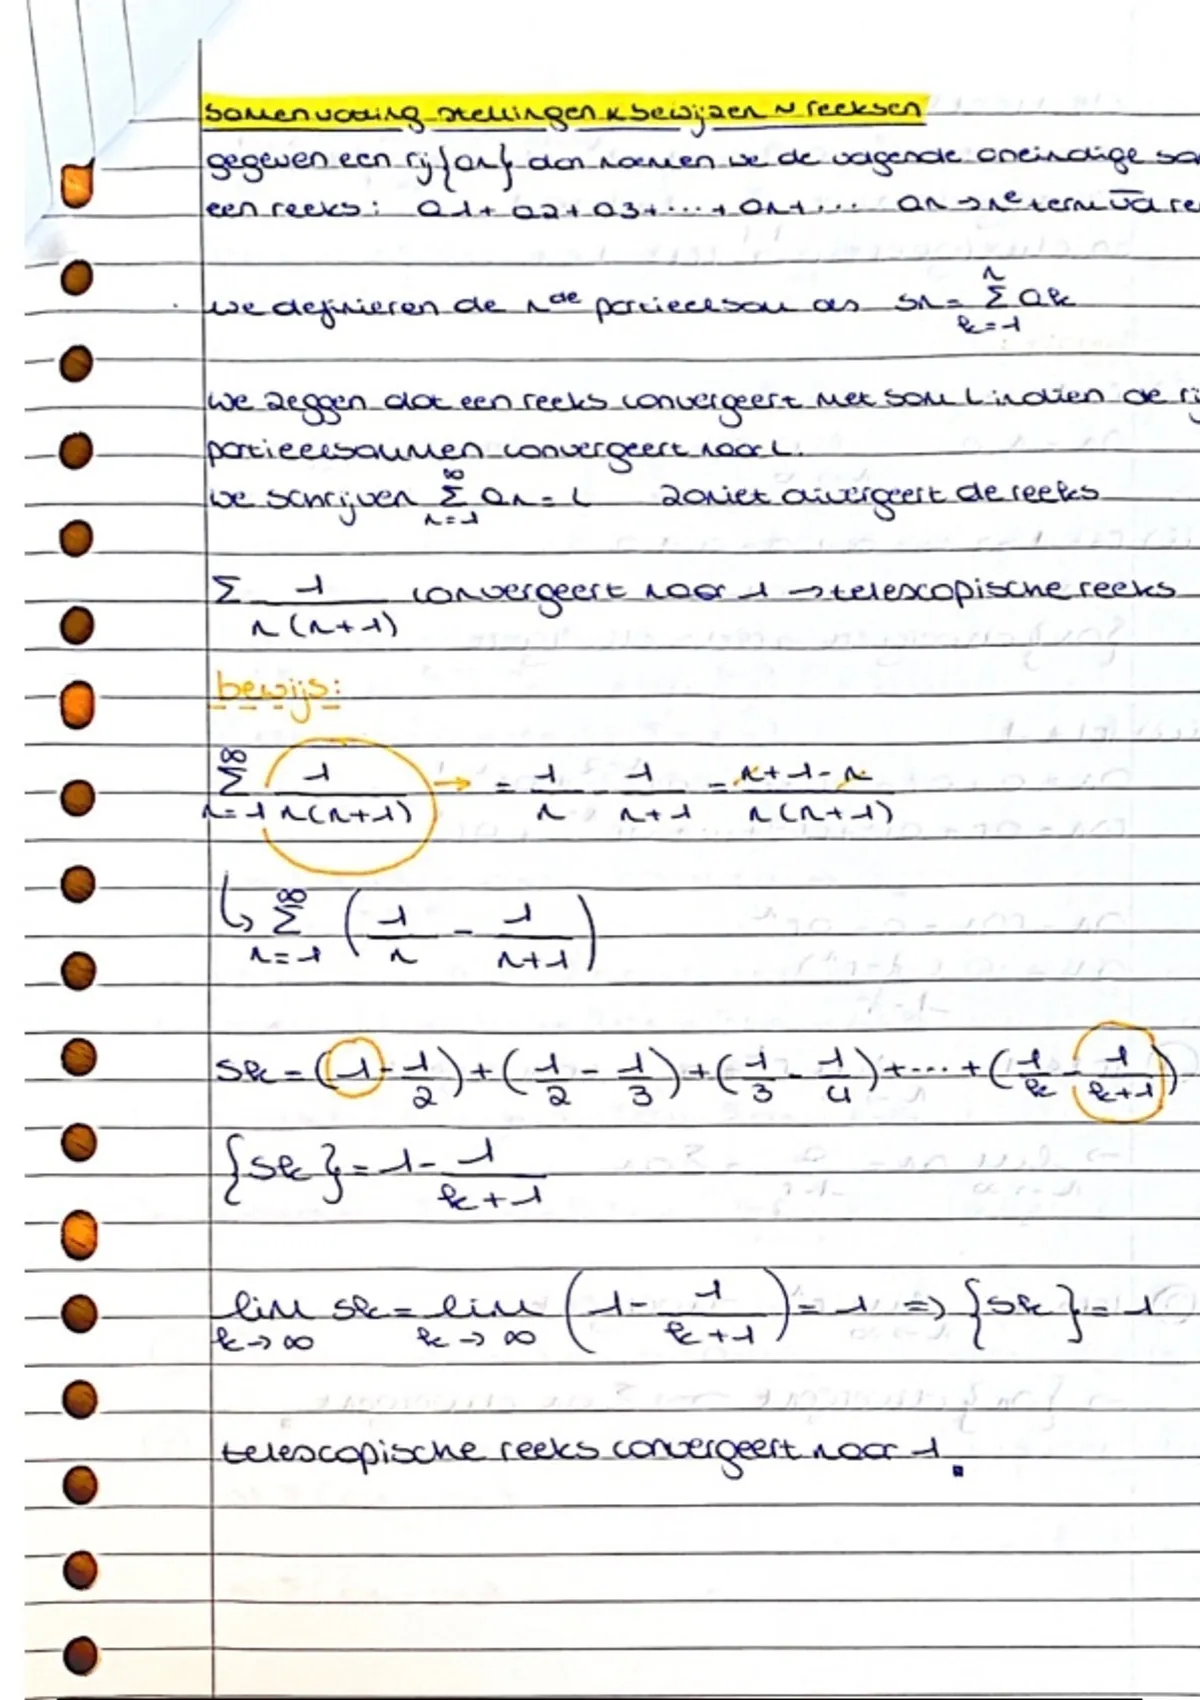 Samenvatting stellingen & bewijzen ~ reeksen
gegeven een rij {an} dan noemen we de volgende oneindige so
een reeks: a1 + a2 + a3 + ... + an + ... an → ne term va re
we definiëren de nde partieelsom als sn = n Σ k=1 ak
we zeggen dat een reeks convergeert met som L indien de rij
partieelsommen convergeert naar L.
we schrijven ∞ Σ n=1 an = L zoniet divergeert de reeks
Σ 1/n(n+1) convergeert naar 1 → telescopische reeks
bewijs:
∞ Σ n=1 1/n(n+1) → = 1/n - 1/n+1 = n+1-n/n(n+1)
↳ ∞ Σ n=1 (1/n - 1/n+1)
sk = (1 - 1/2) + (1/2 - 1/3) + (1/3 - 1/4) + ... + (1/k - 1/k+1)
{sk} = 1 - 1/k+1
lim k→∞ sk = lim k→∞ (1 - 1/k+1) = 1 => {sk} = 1
telescopische reeks convergeert naar 1.